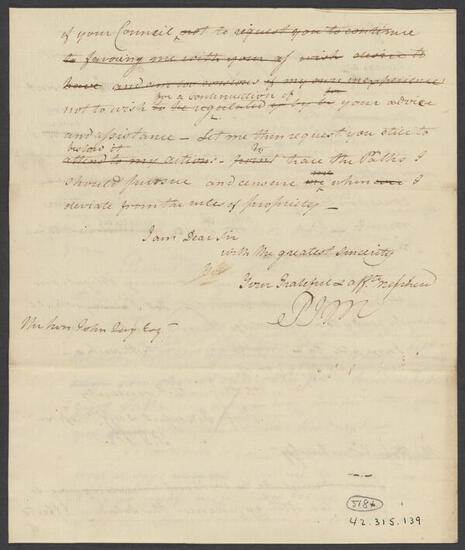 of your Council, not to request you to continue
to favoring me with your of wish desire to
have and am too consious of my own inexperience
for a continuation of for
not to wish to be regulated by your advice
and assistance – Let me then request you still to
bestow it
attend to my actions – from to trace the Paths I
should pursue and censure me whenever I
deviate from the rules of propriety –
I am Dear Sir
with the greatest sincerity
Your Grateful & affte nephew
PJM
The hon John Jay Esqr
518*
42.315.139